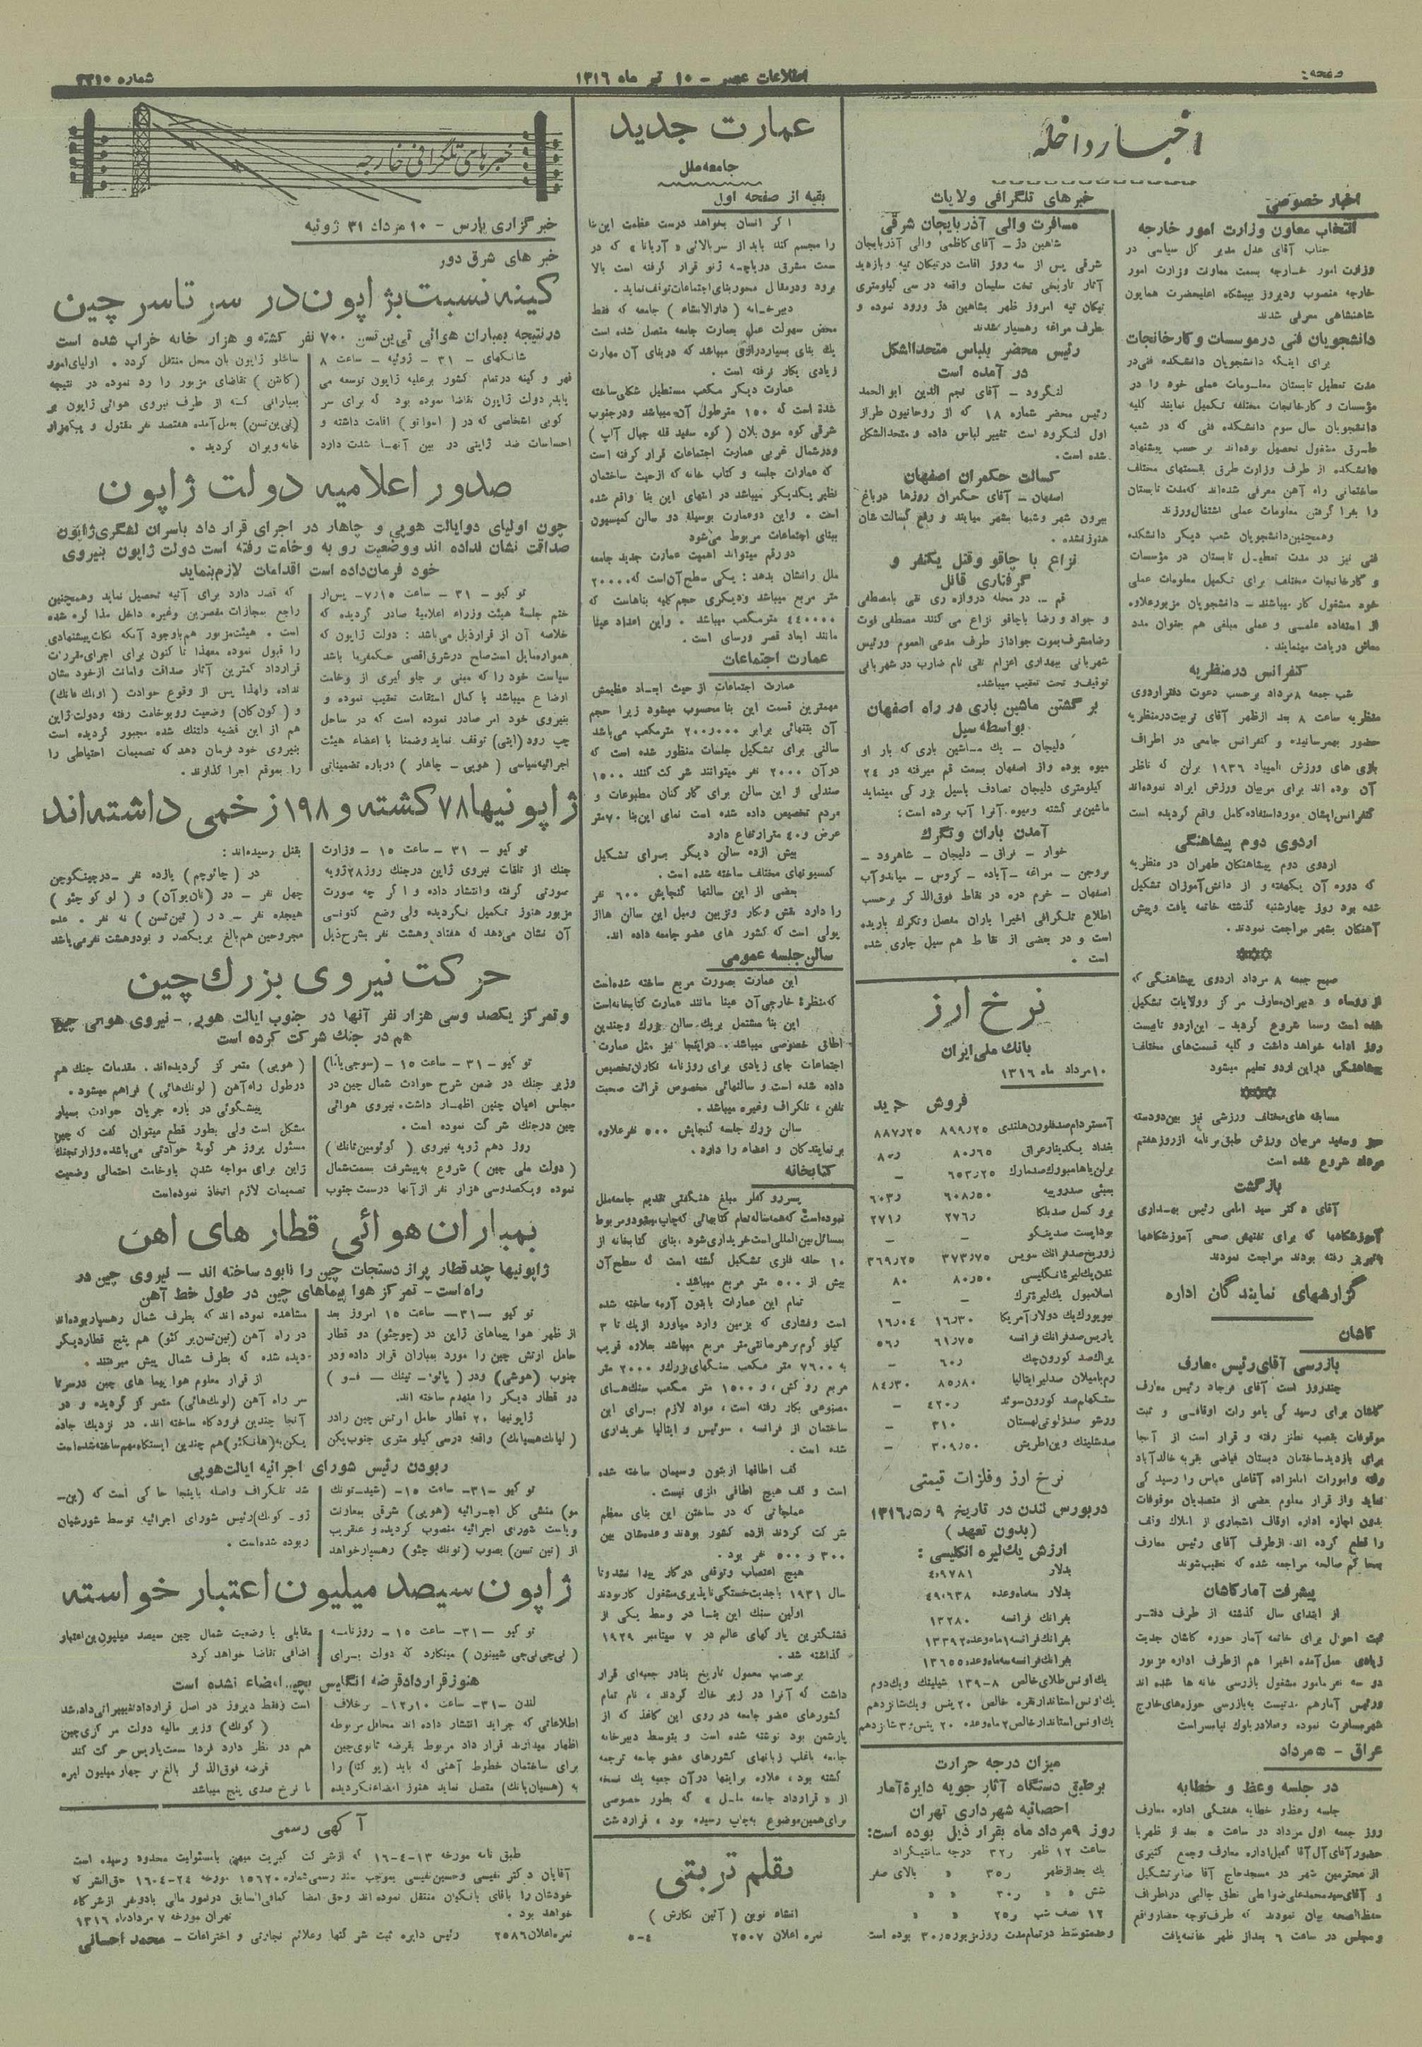 صفحه ۴
اطلاعات عصر - ۱۰ تیر ماه ۱۳۱۶
شماره ۳۳۱۰
اخبار داخله
اخبار خصوصی
انتخاب معاون وزارت امور خارجه
جناب آقای عدل مدیر کل سیاسی در
وزارت امور خارجه بسمت معاونت وزارت امور
خارجه منصوب و دیروز به پیشگاه اعلیحضرت همایون
شاهنشاهی معرفی شدند
دانشجویان فنی در موسسات و کارخانجات
برای اینکه دانشجویان دانشکده فنی در
مدت تعطیل تابستان معلومات عملی خود را در
مؤسسات و کارخانجات مختلفه تکمیل نمایند کلیه
دانشجویان سال سوم دانشکده فنی که در شعبه
طرق مشغول تحصیل بوده‌اند بر حسب پیشنهاد
دانشکده از طرف وزارت طرق بقسمتهای مختلف
ساختمانی راه آهن معرفی شده‌اند که مدت تابستان
را بفرا گرفتن معلومات عملی اشتغال ورزند
و همچنین دانشجویان شعب دیگر دانشکده
فنی نیز در مدت تعطیل تابستان در مؤسسات
و کارخانجات مختلف برای تکمیل معلومات عملی
خود مشغول کار میباشند - دانشجویان مزبور علاوه
از استفاده علمی و عملی مبلغی هم بعنوان مدد
معاش دریافت مینمایند.
کنفرانس در منظریه
شب جمعه ۸ مرداد برحسب دعوت دفتر اردوی
منظریه ساعت ۸ بعد از ظهر آقای تربیت در منظریه
حضور بهمرسانیده و کنفرانس جامعی در اطراف
بازی های ورزش المپیاد ۱۹۳۶ برلن که ناظر
آن بوده اند برای مربیان ورزش ایراد نموده‌اند
کنفرانس ایشان مورد استفاده کامل واقع گردیده است
اردوی دوم پیشاهنگی
اردوی دوم پیشاهنگان طهران در منظریه
که دوره آن یکهفته و از دانش‌آموزان تشکیل
شده بود روز چهارشنبه گذشته خاتمه یافت و پیش
آهنگان بشهر مراجعت نمودند.
صبح جمعه ۸ مرداد اردوی پیشاهنگی که
از روساء و دبیران معارف مرکز و ولایات تشکیل
شده است رسما شروع گردید - این اردو تا بیست
روز ادامه خواهد داشت و کلیه قسمت‌های مختلف
پیشاهنگی در این اردو تعلیم میشود
مسابقه های مختلف ورزشی نیز بین دو دسته
سبز و سفید مربیان ورزش طبق برنامه از روز هفتم
مرداد شروع شده است
بازگشت
آقای دکتر سید امامی رئیس بهداری
آموزشگاهها که برای تفتیش صحی آموزشگاهها
به تبریز رفته بودند مراجعت نمودند
گزارشهای نمایندگان اداره
کاشان
بازرسی آقای رئیس معارف
چند روز است آقای فرجاد رئیس معارف
کاشان برای رسیدگی بامورات اوقافی و ثبت
موقوفات بقصبه نطنز رفته و قرار است از آنجا
برای بازدید ساختمان دبستان فیاضی بقریه خالدآباد
رفته و امورات امامزاده آقاعلی عباس را رسیدگی
نماید و از قرار معلوم بعضی از متصدیان موقوفات
بدون اجازه اداره اوقاف اشجاری از املاک وقف
را قطع کرده اند. از طرف آقای رئیس معارف
بمحاکم صالحه مراجعه شده که تعقیب شوند
پیشرفت آمار کاشان
از ابتدای سال گذشته از طرف دفتر
ثبت احوال برای خاتمه آمار حوزه کاشان جدیت
زیادی بعمل آمده اخیرا هم از طرف اداره مزبور
دو سه نفر مامور مشغول بازرسی خانه ها شده اند
و رئیس آمار هم مدتیست به بازرسی حوزه‌های خارج
شهر مسافرت نموده و فعلا در بلوک نیاسر است
عراق - ۵ مرداد
در جلسه وعظ و خطابه
جلسه وعظ و خطابه هفتگی اداره معارف
روز جمعه اول مرداد در ساعت ۵ بعد از ظهر با
حضور آقای آل آقا کفیل اداره معارف وجمع کثیری
از محترمین شهر در مسجد حاج آقا صابر تشکیل
و آقای سید محمدعلی ضوابطی نطق جالبی در اطراف
حفظ الصحه بیان نمودند که طرف توجه حضار واقع
و مجلس در ساعت ۶ بعد از ظهر خاتمه یافت
خبرهای تلگرافی ولایات
مسافرت والی آذربایجان شرقی
شاهین دژ - آقای کاظمی والی آذربایجان
شرقی پس از سه روز اقامت در تیکان تپه و بازدید
آثار تاریخی تخت سلیمان واقعه در سی کیلومتری
تیکان تپه امروز ظهر بشاهین دژ ورود نموده و
بطرف مراغه رهسپار شدند
رئیس محضر بلباس متحدالشکل
در آمده است
لنگرود - آقای نجم الدین ابوالمحمد
رئیس محضر شماره ۱۸ که از روحانیون طراز
اول لنگرود است تغییر لباس داده و متحدالشکل
شده است.
کسالت حکمران اصفهان
اصفهان - آقای حکمران روزها در باغ
بیرون شهر و شبها بشهر میایند و رفع کسالت شان
هنوز نشده.
نزاع با چاقو و قتل یکنفر و
گرفتاری قاتل
قم - در محله دروازه ری نقی با مصطفی
و جواد و رضا با چاقو نزاع می کنند مصطفی فوت
رضا مشرف بموت جواد از طرف مدعی العموم و رئیس
شهربانی ببهداری اعزام نقی نام ضارب در شهربانی
توقیف و تحت تعقیب میباشد.
برگشتن ماشین باری در راه اصفهان
بواسطه سیل
دلیجان - یک ماشین باری که بار او
میوه بوده و از اصفهان بسمت قم میرفته در ۲۴
کیلومتری دلیجان تصادف باسیل بزرگی مینماید
ماشین بر گشته و میوه آنرا آب برده است:
آمدن باران و تگرگ
خوار - نراق - دلیجان - شاهرود -
بروجن - مراغه - آباده - کروس - میاندوآب
اصفهان - خرم دره در نقاط فوق‌الذکر برحسب
اطلاع تلگرافی اخیرا باران مفصل و تگرگ باریده
است و در بعضی از نقاط هم سیل جاری شده
است.
نرخ ارز
بانک ملی ایران
۱۰ مرداد ماه ۱۳۱۶
فروش خرید
آمستردام صد فلورن هلندی ۸۹۹٫۲۵ ۸۸۷٫۲۵
بغداد یکدینار عراق ۸۰٫۶۵ ۸۰٫
برلن یا هامبورک صدمارک ۶۵۳٫۲۵ -
بمبئی صدروپیه ۶۰۸٫۵۰ ۶۰۳٫
بروکسل صد بلکا ۲۷۶٫ ۲۷۱٫
بوداپست صد پنگو - -
زوریخ صد فرانک سویس ۳۷۳٫۷۵ ۳۶۹٫۲۵
لندن یک لیره انگلیسی ۸۰٫۵۰ ۸۰
اسلامبول یک لیره ترک - -
نیویورک یک دولار آمریکا ۱۶٫۳۰ ۱۶٫۰۴
پاریس صد فرانک فرانسه ۶۱٫۷۵ ۵۶٫
پراک صد کورون چک ۶۰٫ -
رم یا میلان صد لیر ایتالیا ۸۵٫۸۰ ۸۴٫۳۰
ستکهلم صد کورون سوئد ۴۲۰٫ -
ورشو صد زلوتی لهستان ۳۱۰ -
صد شلینک وین اطریش ۳۰۹٫۵۰ -
نرخ ارز و فلزات قیمتی
در بورس لندن در تاریخ ۹ر۵ر۱۳۱۶
(بدون تعهد)
ارزش یک لیره انگلیسی:
بدلار ۴٫۹۷۸۱
بدلار سه‌ماه وعده ۴٫۹۰۶۳۸
بفرانک فرانسه ۱۳۲۸۰
بفرانک فرانسه ۱ ماه وعده ۱۳۳۹۲
بفرانک فرانسه سه ماه وعده ۱۳۶۵۵
یک اونس طلای خالص ۸-۱۳۹ شیلینک ونیم
یک اونس استاندارد نقره خالص ۲۰ پنس و یک شانزدهم
یک اونس استاندارد خالص ۲ ماه وعده ۲۰ پنس و ۳ شانزدهم
میزان درجه حرارت
بر طبق دستگاه آثار جویه دایرة آمار
احصائیه شهرداری تهران
روز ۹ مرداد ماه بقرار ذیل بوده است:
ساعت ۱۲ ظهر ۳۲٫ درجه سانتیگراد
یک بعد از ظهر ۳۵٫ » بالای صفر
شش » » ۳۰٫ » »
۱۲ نصف شب ۲۵٫ » »
و حد متوسط در تمام مدت روز مزبور ۳۰٫۵ بوده است
عمارت جدید
جامعه ملل
بقیه از صفحه اول
اگر انسان بخواهد درست عظمت این بنا
را مجسم کند باید از سربالائی « آریانا » که در
سمت مشرق دریاچه ژنو قرار گرفته است بالا
برود و در مقابل محور بنای اجتماعات توقف نماید.
دبیرخانه (دارالانشاء) جامعه که فقط
محض سهولت عمل بعمارت جامعه متصل شده است
یک بنای بسیار درازی میباشد که در بنای آن مهارت
زیادی بکار نرفته است.
عمارت دیگر مکعب مستطیل شکلی ساخته
شده است که ۱۵۰ متر طول آن میباشد و در جنوب
شرقی کوه مون بلان (کوه سفید قله جبال آلپ)
و در شمال غربی عمارت اجتماعات قرار گرفته است
که عمارات جلسه و کتاب خانه که از حیث ساختمان
نظیر یکدیگر میباشد در انتهای این بنا واقع شده
است. و این دو عمارت بوسیله دو سالن کمیسیون
ببنای اجتماعات مربوط می‌شود
دو رقم میتواند اهمیت عمارت جدید جامعه
ملل را نشان بدهد: یکی سطح آن است که ۲۰۰۰۰
متر مربع میباشد و دیگری حجم کلیه بناهاست که
۴۴۰۰۰۰ مترمکعب میباشد. و این اعداد عینا
مانند ابعاد قصر ورسای است.
عمارت اجتماعات
عمارت اجتماعات از حیث ابعاد عظیمش
مهمترین قسمت این بنا محسوب میشود زیرا حجم
آن بتنهائی برابر ۲۰۰٫۰۰۰ مترمکعب می‌باشد
سالنی برای تشکیل جلسات منظور شده است که
در آن ۲۰۰۰ نفر میتوانند شرکت کنند ۱۵۰۰
صندلی از این سالن برای کارکنان مطبوعات و
مردم تخصیص داده شده است نمای این بنا ۷۰ متر
عرض و ۴۰ متر ارتفاع دارد
بیش از ده سالن دیگر برای تشکیل
کمسیونهای مختلف ساخته شده است.
بعضی از این سالنها گنجایش ۶۰۰ نفر
را دارد نقش و کار و تزیین و مبل این سالن ها از
پولی است که کشور های عضو جامعه داده اند.
سالن جلسه عمومی
این عمارت بصورت مربع ساخته شده است
که منظرهٔ خارجی آن عینا مانند عمارت کتابخانه است
این بنا مشتمل بر یک سالن بزرک و چندین
اطاق خصوصی میباشد. در اینجا نیز مثل عمارت
اجتماعات جای زیادی برای روزنامه نگاران تخصیص
داده شده است و سالنهائی مخصوص قرائت صحبت
تلفن، تلگراف وغیره میباشد.
سالن بزرک جلسه گنجایش ۵۰۰ نفر علاوه
بر نمایندگان و اعضاء را دارد.
کتابخانه
پسر رو کفلر مبلغ هنگفتی تقدیم جامعه ملل
نموده است که همه ساله تمام کتابهائی که چاپ میشود و مربوط
بمسائل بین المللی است خریداری شود. بنای کتابخانه از
۱۰ حلقه فلزی تشکیل گشته است که سطح آن
بیش از ۵۰۰ متر مربع میباشد.
تمام این عمارات با بتون آرمه ساخته شده
است و فشاری که بزمین وارد میاورد از یک تا ۳
کیلوگرم بر هر سانتی متر مربع میباشد بعلاوه قریب
به ۷۶۰۰ متر مکعب سنگهای بزرک و ۲۰۰۰ متر
مربع روکش، و ۱۵۰۰ متر مکعب سنک‌های
مصنوعی بکار رفته است، مواد لازم برای این
ساختمان از فرانسه، سوئیس و ایتالیا خریداری
شده است.
کف اطاقها از بتون و سیمان ساخته شده
است و کف هیچ اطاقی فلزی نیست.
عملجاتی که در ساختن این بنای معظم
شرکت کردند از ده کشور بودند و عده‌شان بین
۳۰۰ و ۵۰۰ نفر بود.
هیچ اعتصاب و توقفی در کار پیدا نشد و تا
سال ۱۹۳۱ با جدیت خستگی ناپذیری مشغول کار بودند
اولین سنک این بنا در وسط یکی از
قشنگترین پارکهای عالم در ۷ سپتامبر ۱۹۲۹
گذاشته شد.
برحسب معمول تاریخ بنا در جعبه‌ای قرار
داشت که آنرا در زیر خاک کردند، نام تمام
کشورهای عضو جامعه در روی این کاغذ که از
پارشمن بود نوشته شده است و بتوسط دبیرخانه
جامعه باغلب زبانهای کشورهای عضو جامعه ترجمه
گشته بود، علاوه براینها در آن جعبه یک نسخه
از « قرارداد جامعه ملل » که بطور خصوصی
برای همین موضوع به چاپ رسیده بود، قرار داشت
بقلم تربتی
انشاء نوین (آئین نگارش)
نمره اعلان ۲۵۰۷ ۴-۵
خبرهای تلگرافی خارجه
خبرگزاری پارس - ۱۰ مرداد ۳۱ ژوئیه
خبر های شرق دور
کینه نسبت بژاپون در سر تا سر چین
در نتیجه بمباران هوائی تی‌ین‌تسن ۷۰۰ نفر کشته و هزار خانه خراب شده است
شانگهای - ۳۱ - ژوئیه - ساعت ۸
قهر و کینه در تمام کشور بر علیه ژاپون توسعه می
یابد. دولت ژاپون تقاضا نموده بود که برای سر
کوبی اشخاصی که در (امواتو) اقامت داشته و
احساسات ضد ژاپنی در بین آنها شدت دارد
ساخلو ژاپون بان محل منتقل گردد. اولیای امور
(کانتن) تقاضای مزبور را رد نموده در نتیجه
بمبارانی که از طرف نیروی هوائی ژاپون به
(تی‌ین‌تسن) بعمل آمده هفتصد نفر مقتول و یکهزار
خانه ویران گردید.
صدور اعلامیه دولت ژاپون
چون اولیای دوایالت هوپی و چاهار در اجرای قرار داد باسران لشگری ژاپون
صداقت نشان نداده اند و وضعیت رو به وخامت رفته است دولت ژاپون بنیروی
خود فرمان داده است اقدامات لازم بنماید
توکیو - ۳۱ - ساعت ۷٫۱۵ - پس از
ختم جلسهٔ هیئت وزراء اعلامیهٔ صادر گردید که
خلاصه آن از قرار ذیل می‌باشد: دولت ژاپون که
همواره مایل است صلح در شرق اقصی حکمفرما باشد
سیاست خود را که مبنی بر جلوگیری از وخامت
اوضاع میباشد با کمال استقامت تعقیب نموده و
بنیروی خود امر صادر نموده است که در ساحل
چپ رود (ایتی) توقف نماید وضمنا با اعضاء هیئت
اجرائیه سیاسی (هوپی - چاهار) درباره تضمیناتی
که قصد دارد برای آتیه تحصیل نماید وهمچنین
راجع بمجازات مقصرین وغیره داخل مذاکره شده
است. هیئت مزبور هم باوجود آنکه نکات پیشنهادی
را قبول نموده معهذا تاکنون برای اجرای مقررات
قرارداد کمترین آثار صداقت و امانت از خودشان
نداده ولهذا پس از وقوع حوادث (لونک فانک)
و (کون کان) وضعیت رو بوخامت رفته و دولت ژاپن
هم از این قضیه دلتنک شده مجبور گردیده است
بنیروی خود فرمان دهد که تصمیمات احتیاطی را
را بموقع اجرا گذارند.
ژاپونیها ۷۸ کشته و ۱۹۸ زخمی داشته‌اند
توکیو - ۳۱ - ساعت ۱۵ - وزارت
جنک از تلفات نیروی ژاپن در جنک روز ۲۸ ژویه
صورتی گرفته و انتشار داده و اگر چه صورت
مزبور هنوز تکمیل نگردیده ولی وضع کنونی
آن نشان می‌دهد که هفتاد وهشت نفر بشرح ذیل
بقتل رسیده‌اند:
در (چانوچم) یازده نفر - در چینکوچن
چهل نفر - در (نان‌یوآن) و (لوکوچئو)
هیجده نفر - در (تین‌تسن) نه نفر. عده
مجروحین هم بالغ بریکصد و نود وهشت نفر می‌باشد
حرکت نیروی بزرک چین
وتمرکز یکصد وسی هزار نفر آنها در جنوب ایالت هوپی - نیروی هوائی چین
هم در جنک شرکت کرده است
توکیو - ۳۱ - ساعت ۱۵ - (سوجی‌یاما)
وزیر جنک در ضمن شرح حوادث شمال چین در
مجلس اعیان چنین اظهار داشت. نیروی هوائی
چین در جنک شرکت نموده است.
روز دهم ژویه نیروی (گوئومین‌تانک)
(دولت ملی چین) شروع به پیشرفت بسمت شمال
نموده ویکصدوسی هزار نفر از آنها درست جنوب
(هوپی) متمرکز گردیده‌اند. مقدمات جنک هم
در طول راه آهن (لونک‌هائی) فراهم میشود.
پیشگوئی در باره جریان حوادث بسیار
مشکل است ولی بطور قطع میتوان گفت که چین
مسئول بروز هر گونهٔ حوادثی می‌باشد. وزارت جنک
ژاپن برای مواجه شدن باوخامت احتمالی وضعیت
تصمیمات لازم اتخاذ نموده است
بمباران هوائی قطار های آهن
ژاپونیها چند قطار پر از دستجات چین را نابود ساخته اند - نیروی چین در
راه است - تمرکز هوا پیماهای چین در طول خط آهن
توکیو - ۳۱ - ساعت ۱۵ امروز بعد
از ظهر هوا پیماهای ژاپن در (چوچئو) دو قطار
حامل ارتش چین را مورد بمباران قرار داده و در
جنوب (هوشی) و در (پائو - تینک - فو)
دو قطار دیگر را منهدم ساخته اند.
ژاپونیها ۲۰ قطار حامل ارتش چین را در
(لیانک‌هسیانک) واقعه در سی کیلو متری جنوب پکن
مشاهده نموده اند که بطرف شمال رهسپار بوده‌اند
در راه آهن (تین‌تسن بر کئو) هم پنج قطار دیگر
دیده شده که بطرف شمال پیش میرفتند.
از قرار معلوم هوا پیما های چین در سرتا
سر راه آهن (لونک‌هائی) متمرکز گردیده و در
آنجا چندین فرودگاه ساخته اند. در نزدیک جاده
پکن به (هانکئو) هم چندین ایستگاه مهم ساخته شده است
ربودن رئیس شورای اجرائیه ایالت هوپی
توکیو - ۳۱ - ساعت ۱۵ - (شید - تونک
مو) منشی کل اجرائیه (هوپی) شرقی بمعاونت
ریاست شورای اجرائیه منصوب گردیده و عنقریب
از (تین تسن) بصوب (تونک چئو) رهسپار خواهد
شد تلگراف واصله باینجا حاکی است که (ین -
ژو - کونک) رئیس شورای اجرائیه توسط شورشیان
ربوده شده است.
ژاپون سیصد میلیون اعتبار خواسته
توکیو - ۳۱ - ساعت ۱۵ - روزنامه
(نی‌جی‌نی‌جی شیبون) مینگارد که دولت برای
مقابلی با وضعیت شمال چین سیصد میلیون ین اعتبار
اضافی تقاضا خواهد کرد
هنوز قرارداد قرضه انگلیس بچین امضاء نشده است
لندن - ۳۱ - ساعت ۱۲٫۱۰ - برخلاف
اطلاعاتی که جراید انتشار داده اند محافل مربوطه
اظهار میدارند قرار داد مربوط بقرضه ثانوی چین
برای ساختمان خطوط آهنی که باید (پوکئو) را
به (هسیان‌یانک) متصل نماید هنوز امضاء نگردیده
است و فقط دیروز در اصل قرارداد تغییراتی داده شد
(کونک) وزیر مالیه دولت مرکزی چین
هم در نظر دارد فردا بسمت پاریس حرکت کند
قرضه فوق‌الذکر بالغ بر چهار میلیون لیره
با نرخ صدی پنج میباشد
آگهی رسمی
طبق نامه مورخه ۱۳-۴-۱۶ که از شرکت کبریت میهن بامسئولیت محدود رسیده است
آقایان دکتر نفیسی وحسین نفیسی بموجب سند رسمی شماره ۱۵۶۲۰ مورخه ۲۴-۴-۱۶ حق الشرکه
خودشان را باقای بانکیان منتقل نموده اند وحق امضا کمافی السابق در امور مالی با دو نفر از شرکاء
خواهد بود.
تهران مورخه ۷ مرداد ماه ۱۳۱۶
نمره اعلان ۲۵۸۶ رئیس دایره ثبت شرکتها و علائم تجارتی و اختراعات - محمد احسانی